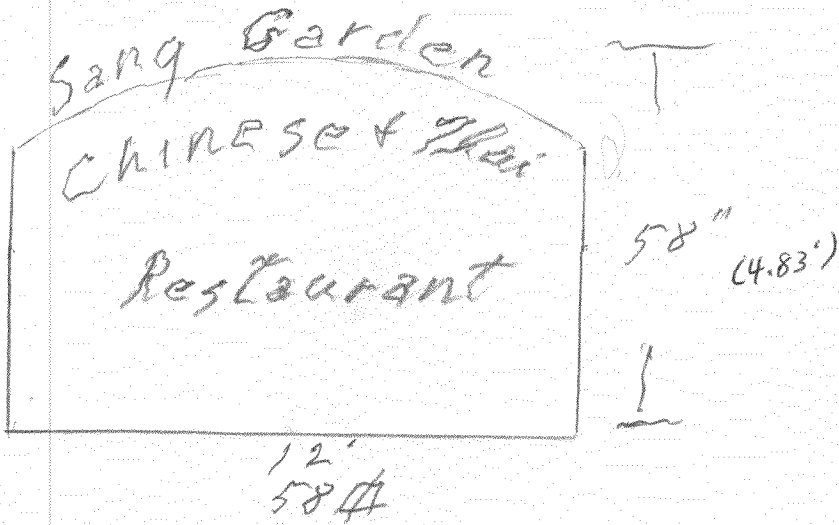 Sang Garden
Chinese & Thai
Restaurant
58"
(4.83')
12'
58⌗